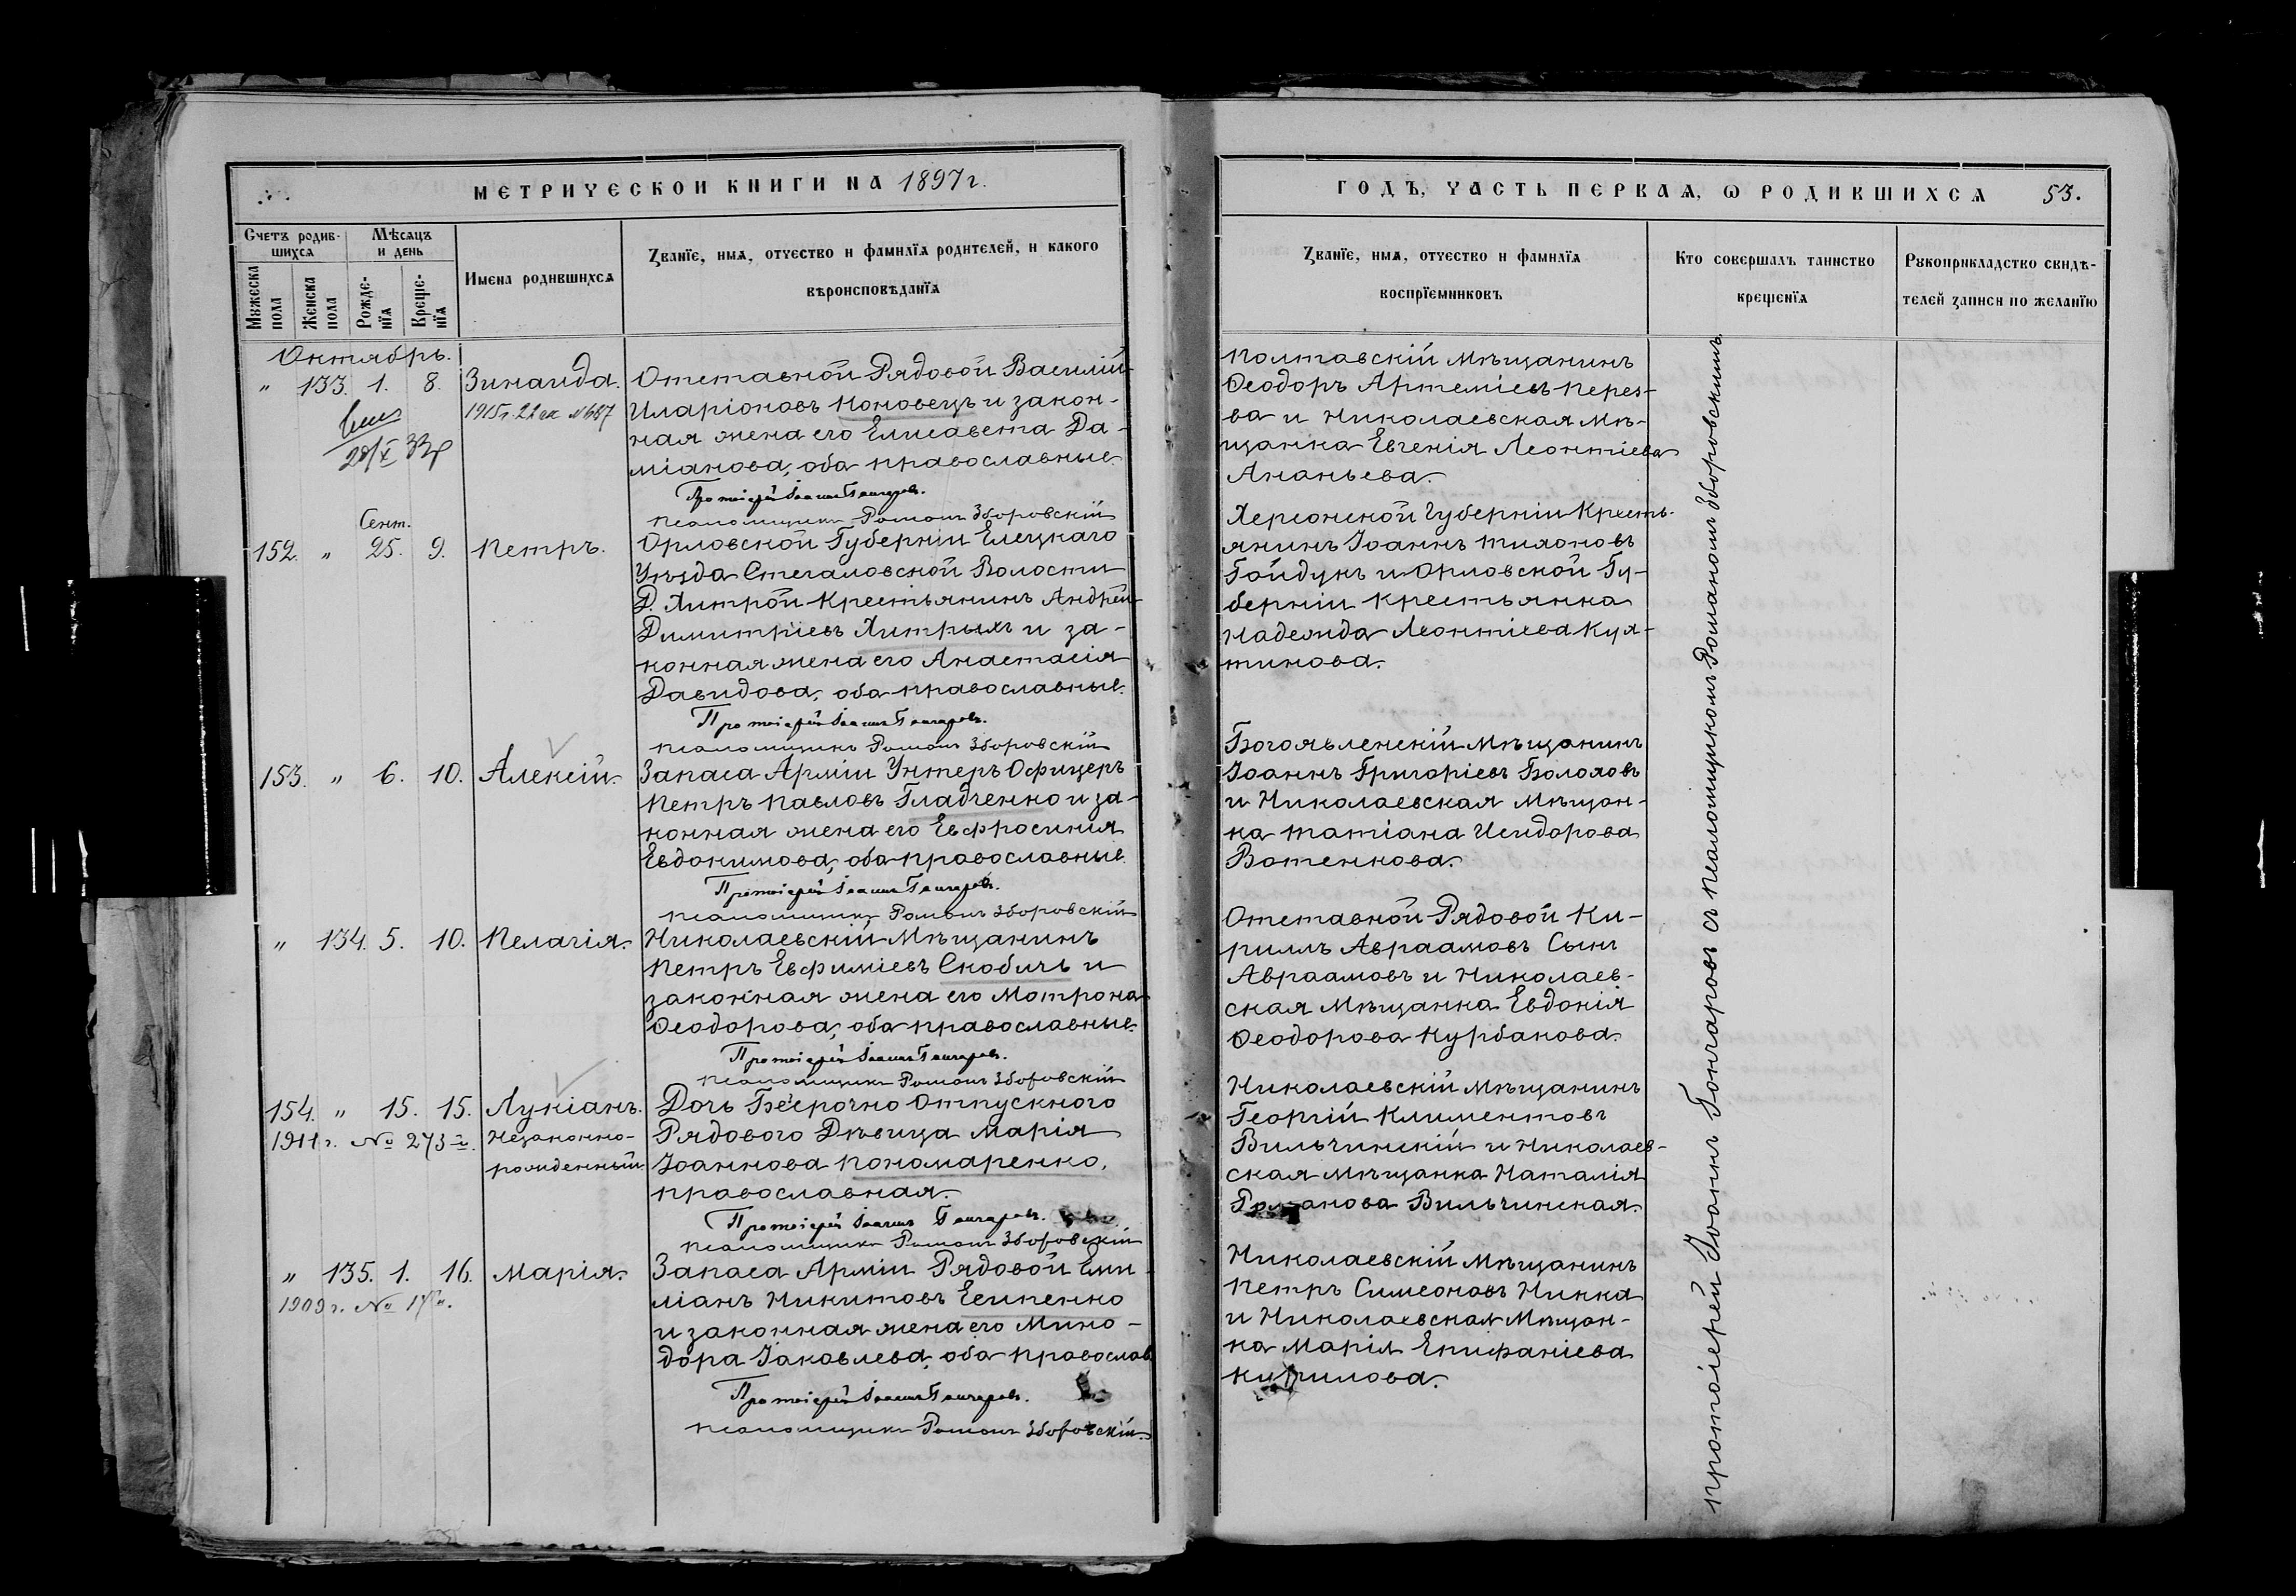 МЕТРИЧЕСКОЙ КНИГИ НА 1897 г.
Счетъ родив-
шихся
Мѣсяцъ
и день
Мужеска
пола
Женска
пола
Рожде-
нїя
Креще-
нїя
Имена родившихся
Званїе, имя, отчество и фамилїя родителей, и какого
вѣроисповѣданїя
Октябрь.
" 133. 1. 8. Зинаида.
1915 г. 22
Отставной Рядовой Василій
Иларіоновъ Коновецъ и закон-
ная жена его Елисавета Да-
міанова, оба православные.
Протоіерей Іоаннъ Гончаровъ.
Псаломщикъ Романъ Зборовскій
Сент.
152. " 25. 9. Петръ.
Орловской Губерніи Елецкаго
Уѣзда Стегаловской Волости
Д. Хитрой Крестьянинъ Андрей
Димитріевъ Хитрыхъ и за-
конная жена его Анастасія
Давидова, оба православные.
Протоіерей Іоаннъ Гончаровъ.
Псаломщикъ Романъ Зборовскій
153. " 6. 10. Алексій.
Запаса Арміи Унтеръ Офицеръ
Петръ Павловъ Гладченко и за-
конная жена его Евфросинія
Евдокимова, оба православные.
Протоіерей Іоаннъ Гончаровъ.
Псаломщикъ Романъ Зборовскій
" 134. 5. 10. Пелагія.
Николаевскій Мѣщанинъ
Петръ Евфиміевъ Скобичъ и
законная жена его Мотрона
Ѳеодорова, оба православные.
Протоіерей Іоаннъ Гончаровъ.
Псаломщикъ Романъ Зборовскій
154. " 15. 15. Лукіанъ.
1911 г. № 273
Незаконно-
рожденный
Дочь Безсрочно Отпускного
Рядового Дѣвица Марія
Іоаннова Пономаренко,
православная.
Протоіерей Іоаннъ Гончаровъ.
Псаломщикъ Романъ Зборовскій
" 135. 1. 16. Марія.
1909 г. №
Запаса Арміи Рядовой Еми-
ліанъ Никитовъ Есипенко
и законная жена его Мино-
дора Іаковлева, оба православ
Протоіерей Іоаннъ Гончаровъ.
Псаломщикъ Романъ Зборовскій.
ГОДЪ, ЧАСТЬ ПЕРВАЯ, Ѡ РОДИВШИХСЯ 53.
Званїе, имя, отчество и фамилїя
воспрїемниковъ
Кто совершалъ таинство
крещенїя
Рукоприкладство свидѣ-
телей записи по желанїю
Полтавскій Мѣщанинъ
Ѳеодоръ Артеміевъ Перез-
ва и Николаевская Мѣ-
щанка Евгенія Леонтіева
Ананьева.
Херсонской Губерніи Кресть-
янинъ Іоаннъ Тихоновъ
Гойдукъ и Орловской Гу-
берніи Крестьянка
Надежда Леонтіева Кул-
тинова.
Богоявленскій Мѣщанинъ
Іоаннъ Григоріевъ Болоховъ
и Николаевская Мѣщан-
ка Татіана Исидорова
Вотенкова.
Отставной Рядовой Ки-
риллъ Авраамовъ Сынъ
Авраамовъ и Николаев-
ская Мѣщанка Евдокія
Ѳеодорова Курбанова.
Николаевскій Мѣщанинъ
Георгій Климентовъ
Вильчинскій и Николаев-
ская Мѣщанка Наталія
Романова Вильчинская.
Николаевскій Мѣщанинъ
Петръ Симеоновъ Никка
и Николаевская Мѣщан-
ка Марія Епифаніева
Кирилова.
Протоіерей Іоаннъ Гончаровъ съ Псаломщикомъ Романомъ Зборовскимъ